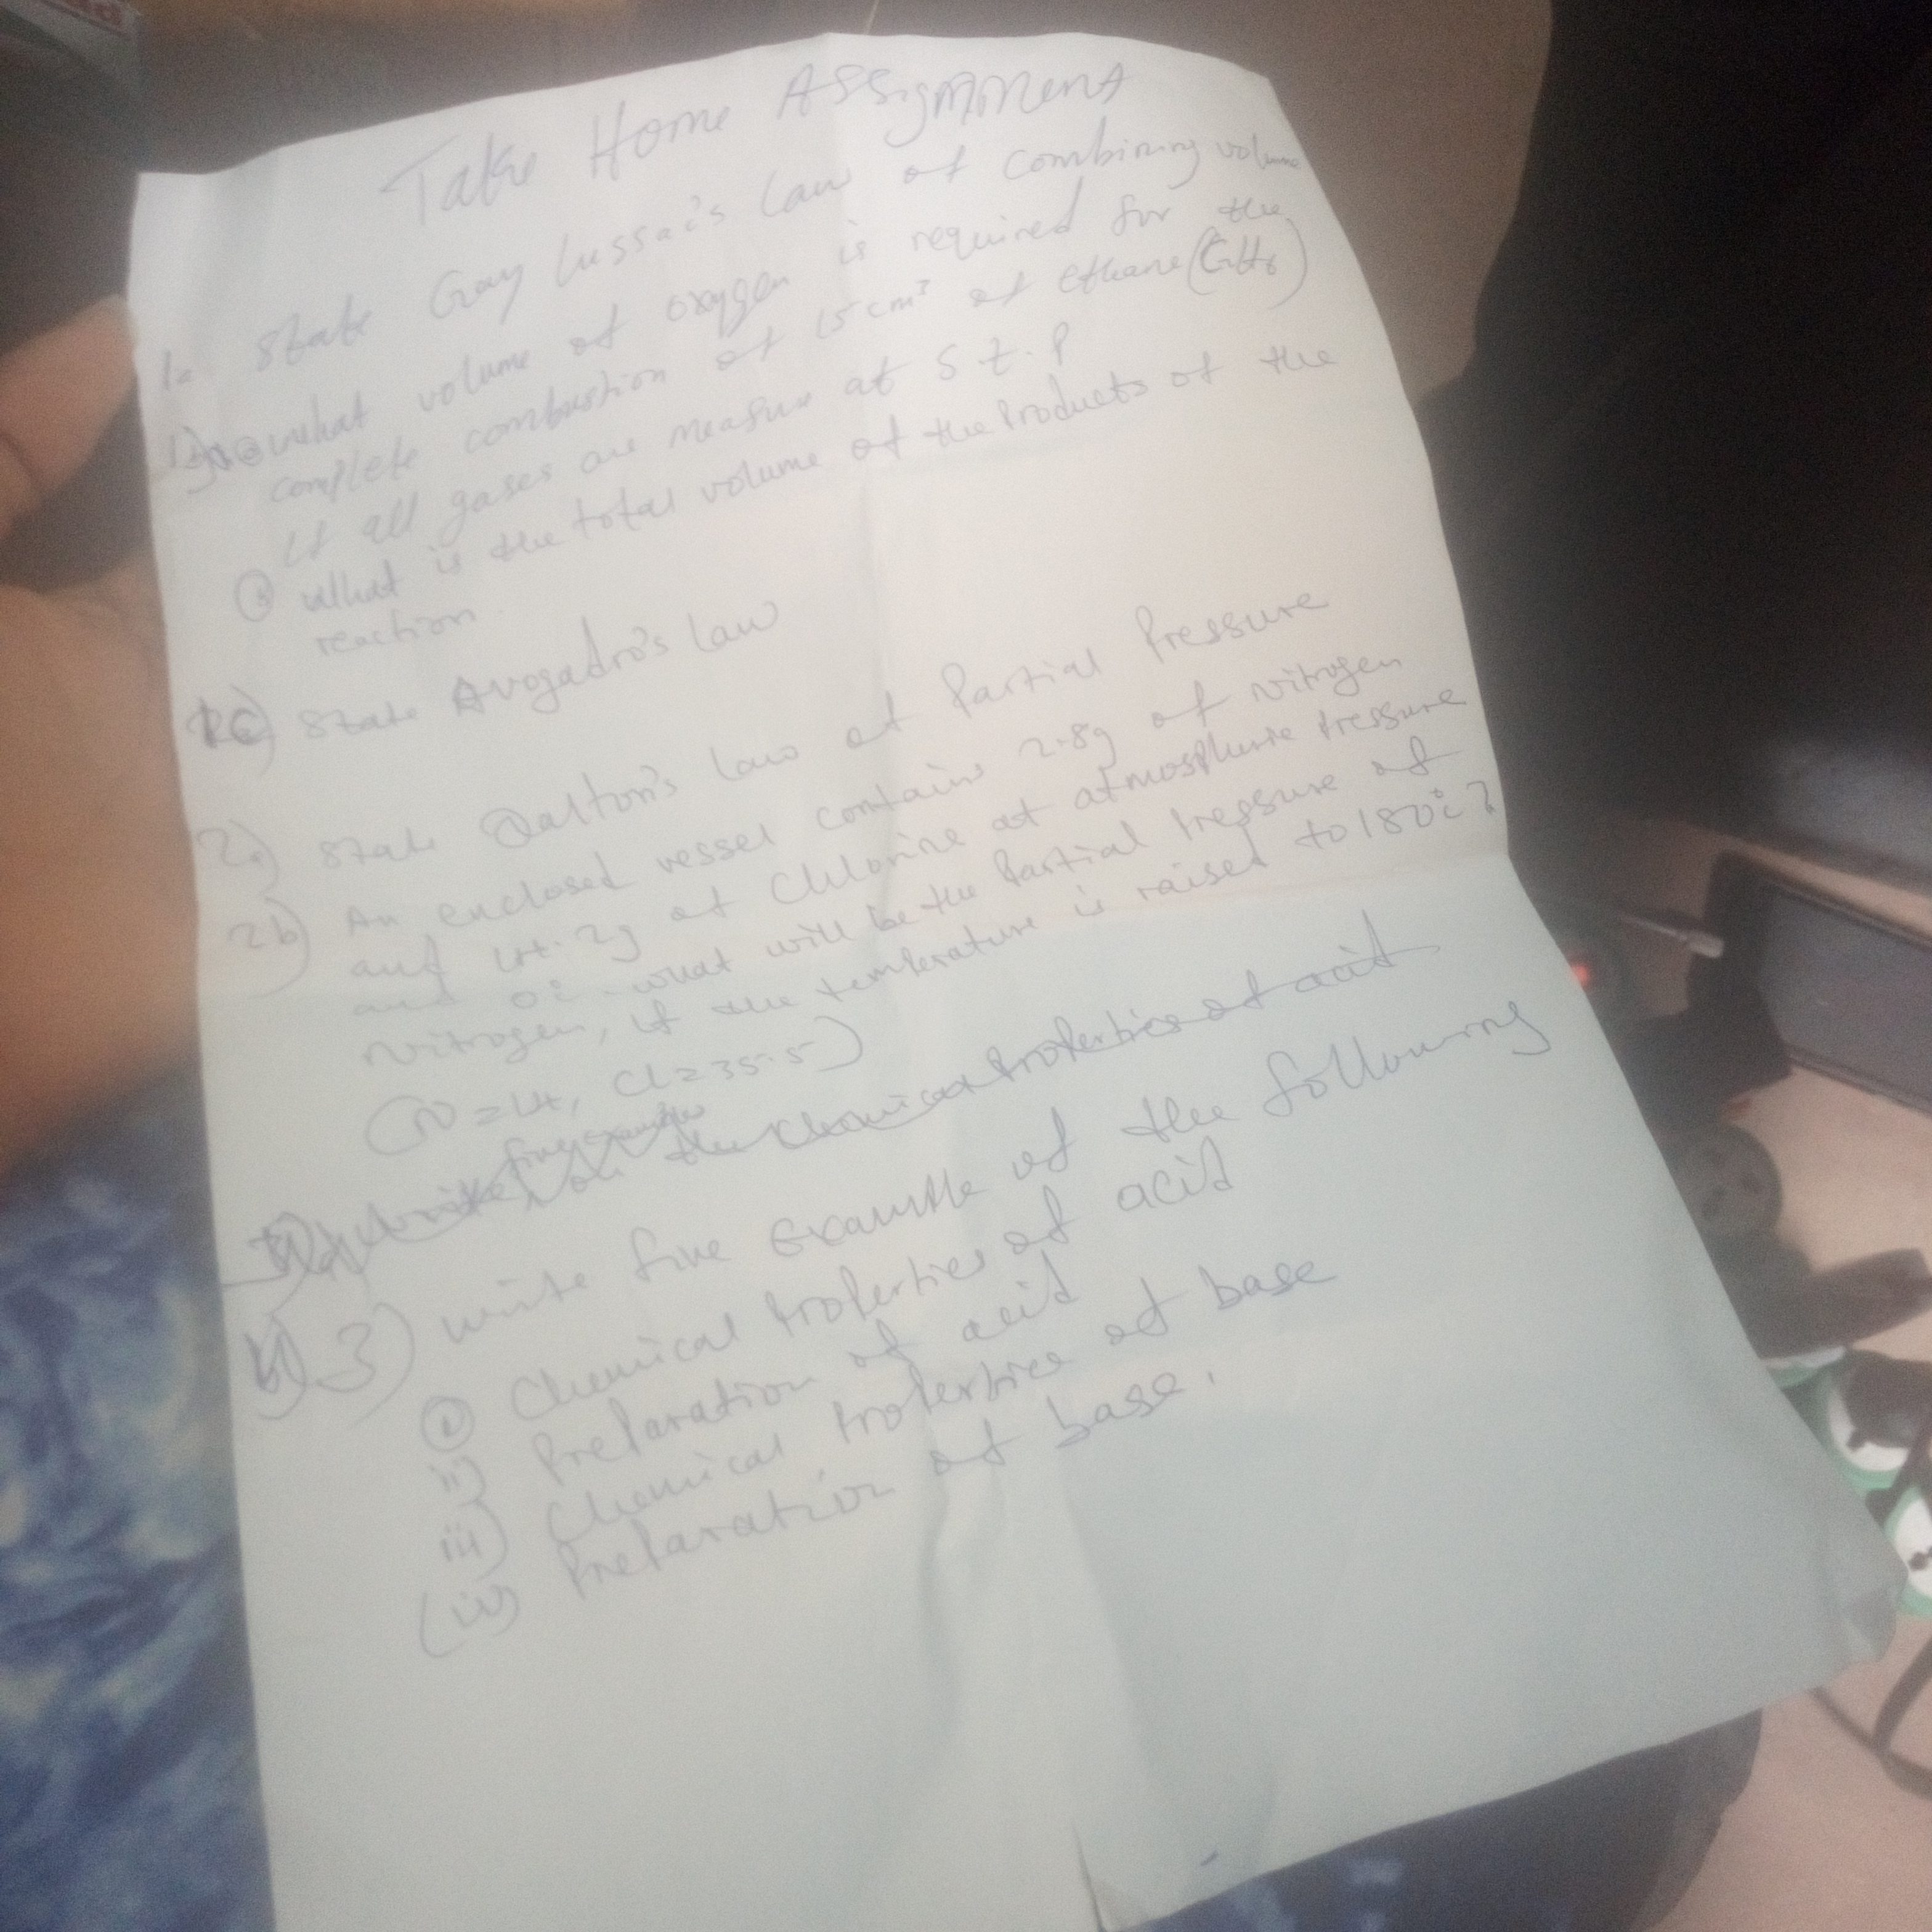 Take Home Assignment
1a State Gay Lussac's Law of combining volume
what volume of oxygen is required for the
complete combustion of 15cm³ of ethane (C2H6)
if all gases are measure at S.t.P
What is the total volume of the Products of the
reaction
1c) State Avogadro's Law
2a) State Dalton's Law of Partial Pressure
2b) An enclosed vessel contains 2.8g of nitrogen
and 14.2g of chlorine at atmospheric Pressure
and 0°c. what will be the Partial Pressure of
Nitrogen, if the temperature is raised to 180°c?
(N=14, Cl=35.5)
five example
write on the chemical Properties of acid
3) write five Example of the following
i) Chemical Properties of acid
ii) Preparation of acid
iii) Chemical Properties of base
(iv) Preparation of base.